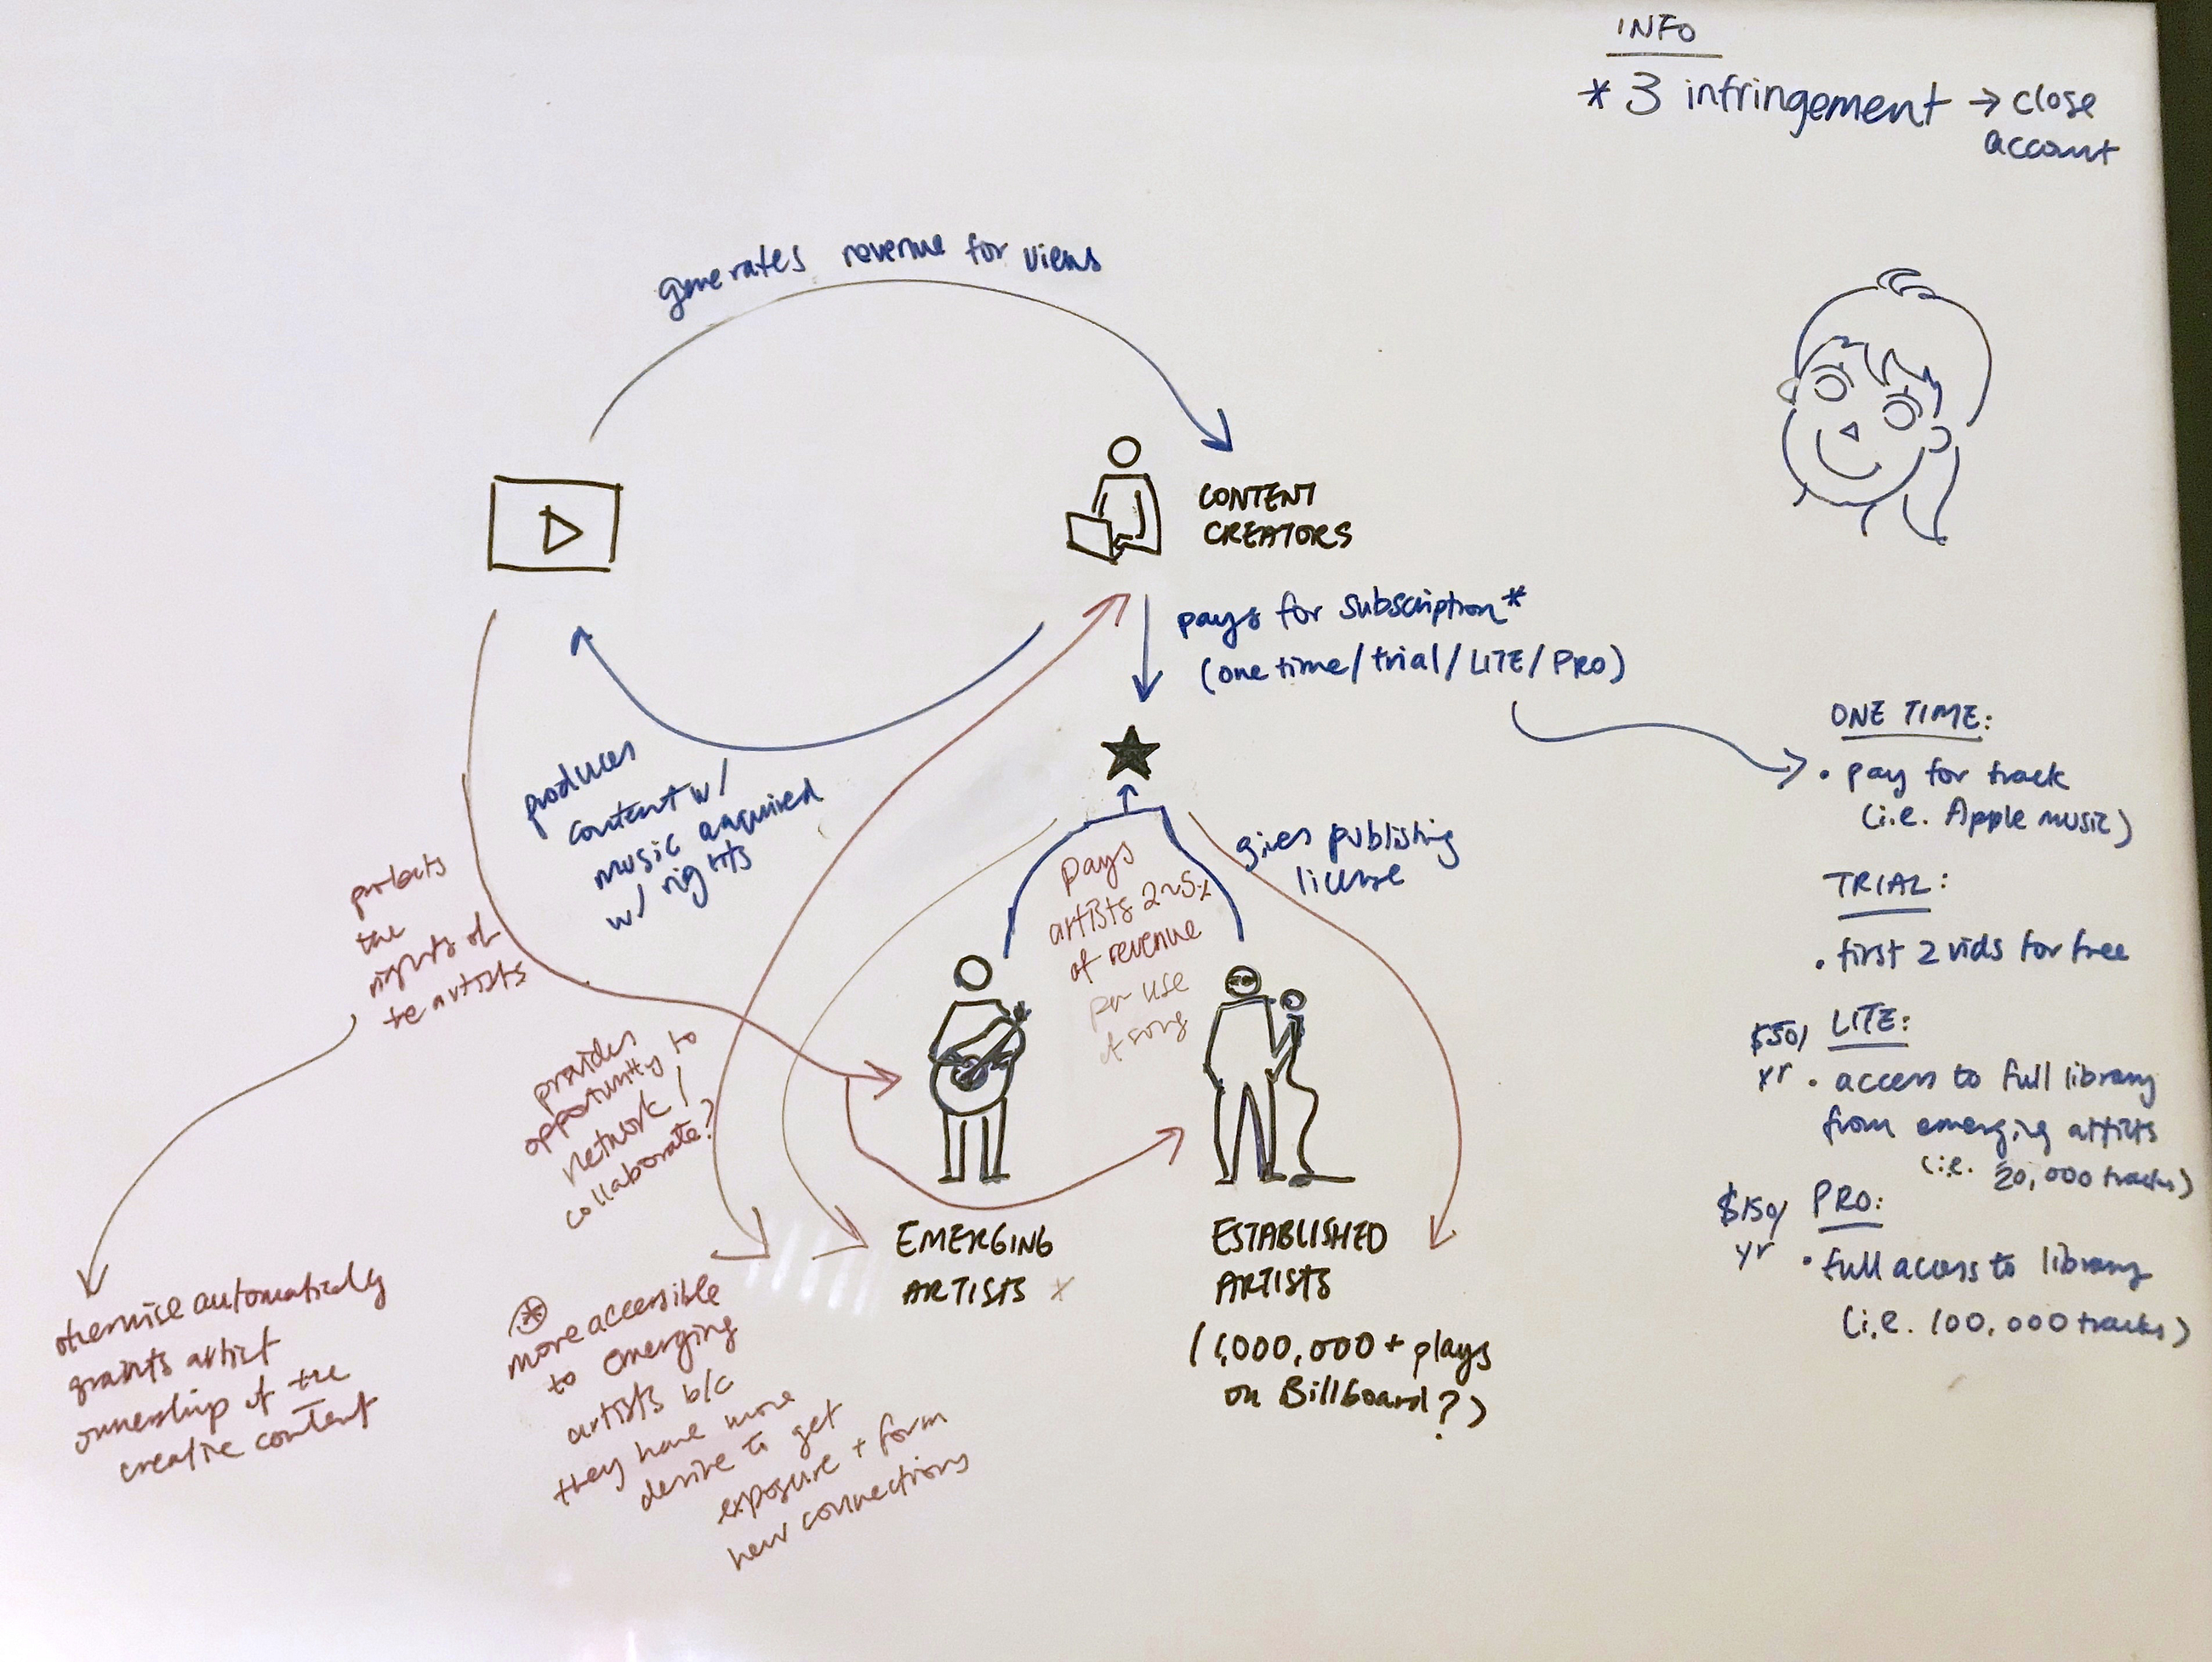 INFO
* 3 infringement → close
account
generates revenue for views
CONTENT
CREATORS
pays for subscription*
(one time/trial/LITE/PRO)
produces
content w/
music acquired
w/ rights
gives publishing
license
pays
artists 2~5%
of revenue
per use
of song
protects
the
rights of
the artists
provides
opportunity to
network /
collaborate?
otherwise automatically
grants artist
ownership of the
creative content
EMERGING
ARTISTS x
ESTABLISHED
ARTISTS
(1,000,000+ plays
on Billboard?)
* more accessible
to emerging
artists b/c
they have more
desire to get
exposure + form
new connections
ONE TIME:
• pay for track
(i.e. Apple music)
TRIAL:
• first 2 vids for free
$50/ LITE:
yr • access to full library
from emerging artists
(i.e. 20,000 tracks)
$150/ PRO:
yr • full access to library
(i.e. 100,000 tracks)